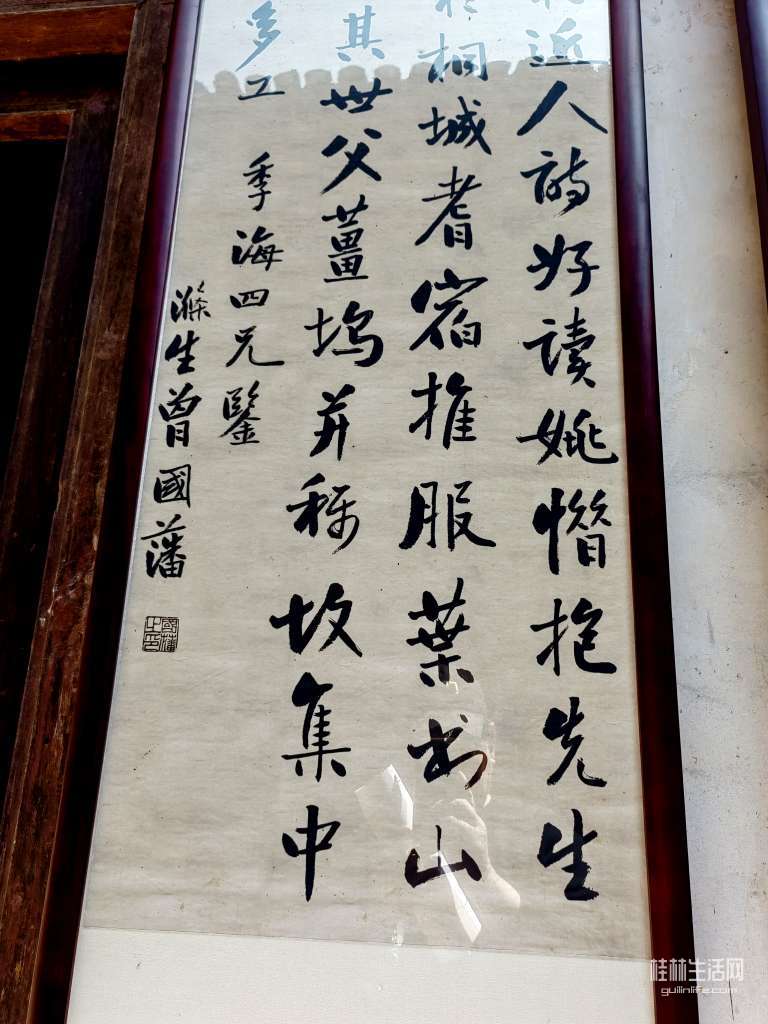 近人詩好讀姚惜抱先生
桐城耆宿推服葉書山
其世父薑塢并稱故集中
多工
季海四兄鑒
滌生曾國藩
國藩之印
桂林生活网
guilinlife.com